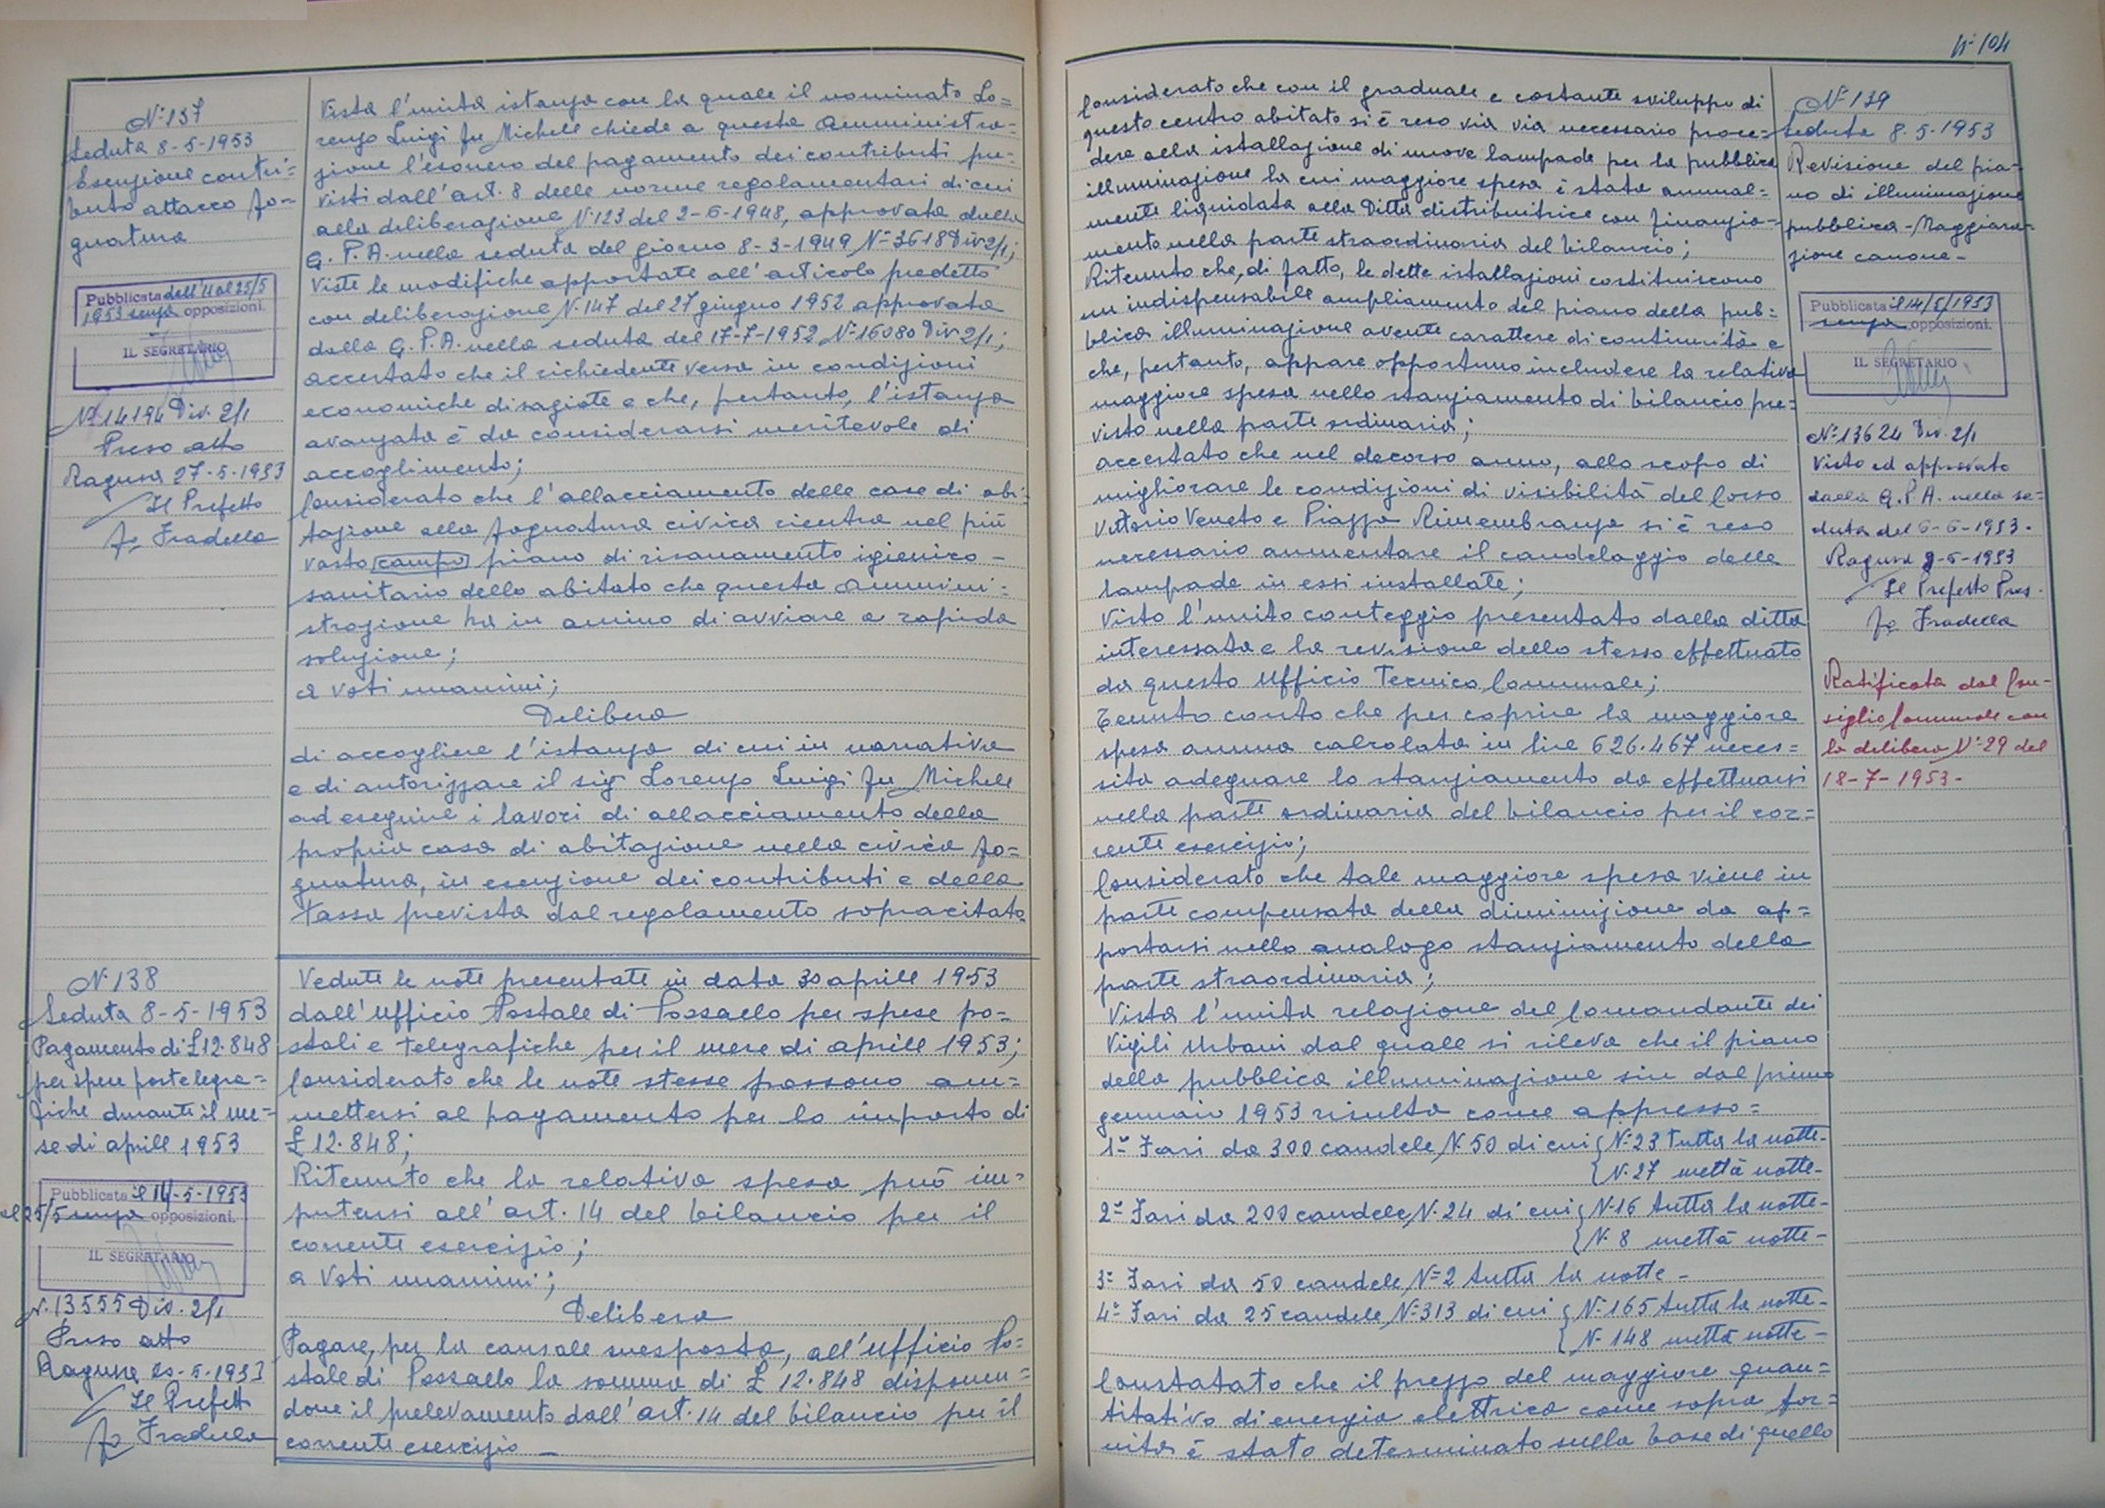 N° 137
Seduta 8-5-1953
Esenzione contri=
buto attacco fo-
gnatura
Pubblicata dall'11 al 25/5
1953 senza opposizioni.
IL SEGRETARIO
N° 14194 Div. 2/1
Preso atto
Ragusa 27-5-1953
Il Prefetto
Fo Fradella
Vista l'unita istanza con la quale il nominato Lo=
renzo Luigi fu Michele chiede a questa Amministra-
zione l'esonero del pagamento dei contributi pre-
visti dall'art. 8 delle norme regolamentari di cui
alla deliberazione N. 123 del 2-6-1948, approvata dalla
G. P. A. nella seduta del giorno 8-3-1949 N° 3618 Div 2/1;
Viste le modifiche apportate all'articolo predetto
con deliberazione N. 147 del 27 giugno 1952 approvata
dalla G. P. A. nella seduta del 17-7-1952 N° 16080 Div 2/1;
accertato che il richiedente versa in condizioni
economiche disagiate e che, pertanto, l'istanza
avanzata è da considerarsi meritevole di
accoglimento;
Considerato che l'allacciamento delle case di abi-
tazione alla fognatura civica rientra nel più
vasto campo piano di risanamento igienico-
sanitario dello abitato che questa Ammini-
strazione ha in animo di avviare a rapida
soluzione;
a voti unanimi;
Delibera
di accogliere l'istanza di cui in narrativa
e di autorizzare il sig Lorenzo Luigi fu Michele
ad eseguire i lavori di allacciamento della
propria casa di abitazione nella civica fo=
gnatura, in esenzione dei contributi e della
tassa prevista dal regolamento sopracitato
N. 138
Seduta 8-5-1953
Pagamento di £ 12.848
per spese postelegra=
fiche durante il me=
se di aprile 1953
Pubblicata il 14-5-1953
al 25/5 senza opposizioni.
IL SEGRETARIO
N. 13555 Div. 2/1
Preso atto
Ragusa 20-5-1953
Il Prefetto
Fo Fradella
Vedute le note presentate in data 30 aprile 1953
dall'Ufficio Postale di Pozzallo per spese po=
stali e telegrafiche per il mese di aprile 1953;
Considerato che le note stesse possono am=
mettersi al pagamento per lo importo di
£ 12.848;
Ritenuto che la relativa spesa può im-
putarsi all'art. 14 del bilancio per il
corrente esercizio;
a voti unanimi;
Delibera
Pagare, per la causale suesposta, all'Ufficio Po=
stale di Pozzallo la somma di £ 12.848 disponen=
done il prelevamento dall'art. 14 del bilancio per il
corrente esercizio -
N° 104
Considerato che con il graduale e costante sviluppo di
questo centro abitato si è reso via via necessario proce=
dere alla istallazione di nuove lampade per la pubblica
illuminazione la cui maggiore spesa è stata annual=
mente liquidata alla Ditta distributrice con finanzia-
mento nella parte straordinaria del bilancio;
Ritenuto che, di fatto, le dette istallazioni costituiscono
un indispensabile ampliamento del piano della pub=
blica illuminazione avente carattere di continuità e
che, pertanto, appare opportuno includere la relativa
maggiore spesa nello stanziamento di bilancio pre=
visto nella parte ordinaria;
accertato che nel decorso anno, allo scopo di
migliorare le condizioni di visibilità del Corso
Vittorio Veneto e Piazza Rimembranza si è reso
necessario aumentare il candelaggio delle
lampade in essi installate;
Visto l'unito conteggio presentato dalla ditta
interessata e la revisione dello stesso effettuato
da questo Ufficio Tecnico Comunale;
Tenuto conto che per coprire la maggiore
spesa annua calcolata in lire 626.467 neces=
sita adeguare lo stanziamento da effettuarsi
nella parte ordinaria del bilancio per il cor=
rente esercizio;
Considerato che tale maggiore spesa viene in
parte compensata della diminuzione da ap=
portarsi nello analogo stanziamento della
parte straordinaria;
Vista l'unita relazione del Comandante dei
Vigili Urbani dal quale si rileva che il piano
della pubblica illuminazione sin dal primo
gennaio 1953 risulta come appresso=
1° Fari da 300 candele N. 50 di cui { N. 23 tutta la notte-
{ N. 27 mettà notte-
2° Fari da 200 candele N. 24 di cui { N. 16 tutta la notte-
{ N. 8 mettà notte-
3° Fari da 50 candele N° 2 tutta la notte-
4° Fari da 25 candele N° 313 di cui { N. 165 tutta la notte-
{ N. 148 mettà notte-
Constatato che il prezzo del maggiore quan=
titativo di energia elettrica come sopra for=
nita è stato determinato sulla base di quello
N° 139
Seduta 8-5-1953
Revisione del pia-
no di illuminazione
pubblica - Maggiora-
zione canone-
Pubblicata il 14/5/1953
senza opposizioni.
IL SEGRETARIO
N° 13624 Div. 2/1
Visto ed approvato
dalla G. P. A. nella se=
duta del 6-6-1953-
Ragusa 9-6-1953
Il Prefetto Pres.
Fo Fradella
Ratificata dal Con-
siglio Comunale con
la delibera N° 29 del
18-7-1953-